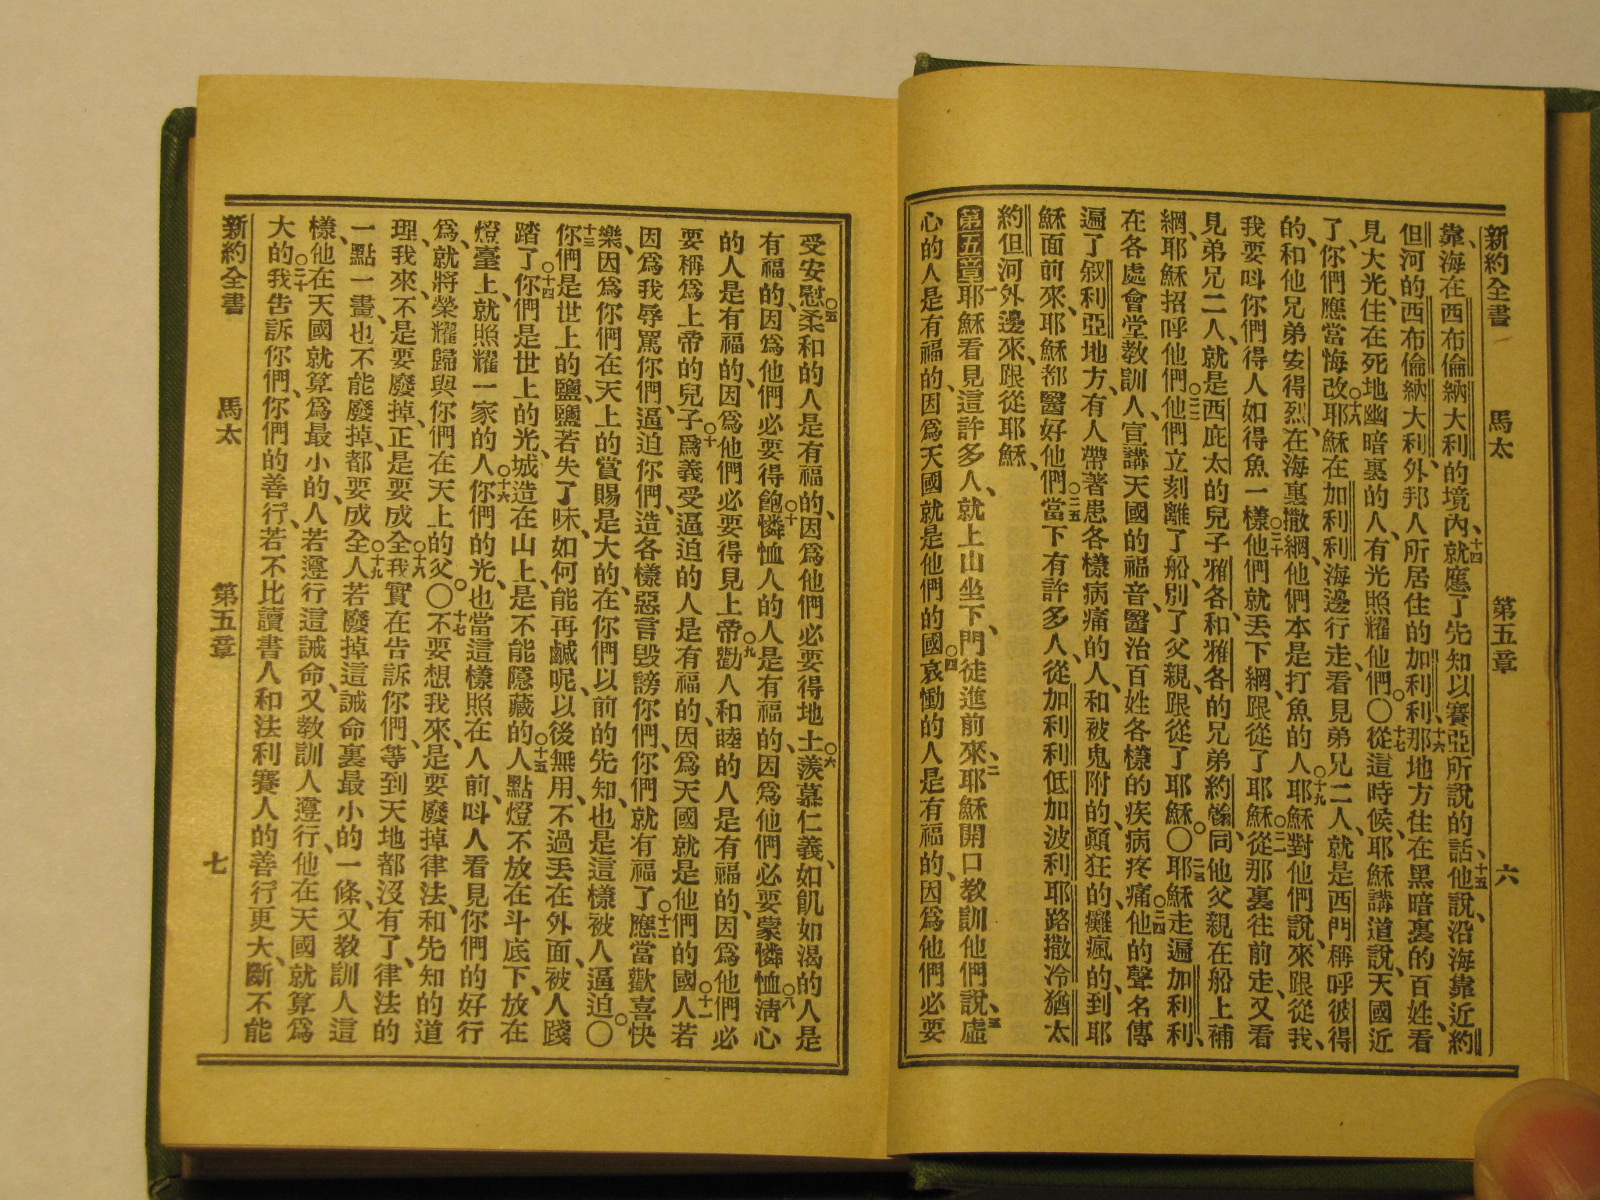 新約全書 馬太 第五章 六
靠海在西布倫納大利的境內、十四就應了先知以賽亞所說的話、十五他說沿海靠近約
但河的西布倫納大利、外邦人所居住的加利利、十六那地方住在黑暗裏的百姓看
見大光、住在死地幽暗裏的人、有光照耀他們○十七從這時候、耶穌講道說、天國近
了、你們應當悔改○十八耶穌在加利利海邊行走、看見弟兄二人、就是西門稱呼彼得
的、和他兄弟安得烈、在海裏撒網、他們本是打魚的人○十九耶穌對他們說、來跟從我、
我要呌你們得人如得魚一樣○二十他們就丟下網、跟從了耶穌○二一從那裏往前走、又看
見弟兄二人、就是西庇太的兒子雅各、和雅各的兄弟約翰、同他父親在船上補
網、耶穌招呼他們○二二他們立刻離了船、別了父親、跟從了耶穌○二三耶穌走遍加利利、
在各處會堂教訓人、宣講天國的福音、醫治百姓各樣的疾病疼痛○二四他的聲名傳
遍了叙利亞地方、有人帶著患各樣病痛的人、和被鬼附的、顚狂的、癱瘋的、到耶
穌面前來、耶穌都醫好他們○二五當下有許多人、從加利利低加波利耶路撒冷猶太
約但河外邊來、跟從耶穌、
第五章一耶穌看見這許多人、就上山坐下、門徒進前來、二耶穌開口教訓他們說、三虛
心的人是有福的、因爲天國就是他們的國○四哀慟的人是有福的、因爲他們必要
受安慰○五柔和的人是有福的、因爲他們必要得地土○六羨慕仁義、如飢如渴的人是
有福的、因爲他們必要得飽○七憐恤人的人是有福的、因爲他們必要蒙憐恤○八淸心
的人是有福的、因爲他們必要得見上帝○九勸人和睦的人是有福的、因爲他們必
要稱爲上帝的兒子○十爲義受逼迫的人是有福的、因爲天國就是他們的國○十一人若
因爲我辱罵你們、逼迫你們、造各樣惡言毀謗你們、你們就有福了○十二應當歡喜快
樂、因爲你們在天上的賞賜是大的、在你們以前的先知、也是這樣被人逼迫○
十三你們是世上的鹽、鹽若失了味、如何能再鹹呢、以後無用、不過丟在外面、被人踐
踏了○十四你們是世上的光、城造在山上、是不能隱藏的○十五人點燈不放在斗底下、放在
燈臺上、就照耀一家的人○十六你們的光、也當這樣照在人前、呌人看見你們的好行
爲、就將榮耀歸與你們在天上的父○十七不要想我來、是要廢掉律法、和先知的道
理、我來不是要廢掉、正是要成全○十八我實在告訴你們、等到天地都沒有了、律法的
一點一畫、也不能廢掉、都要成全○十九人若廢掉這誡命裏最小的一條、又敎訓人這
樣、他在天國就算爲最小的、人若遵行這誡命、又敎訓人遵行、他在天國就算爲
大的○二十我告訴你們、你們的善行、若不比讀書人和法利賽人的善行更大、斷不能
新約全書 馬太 第五章 七